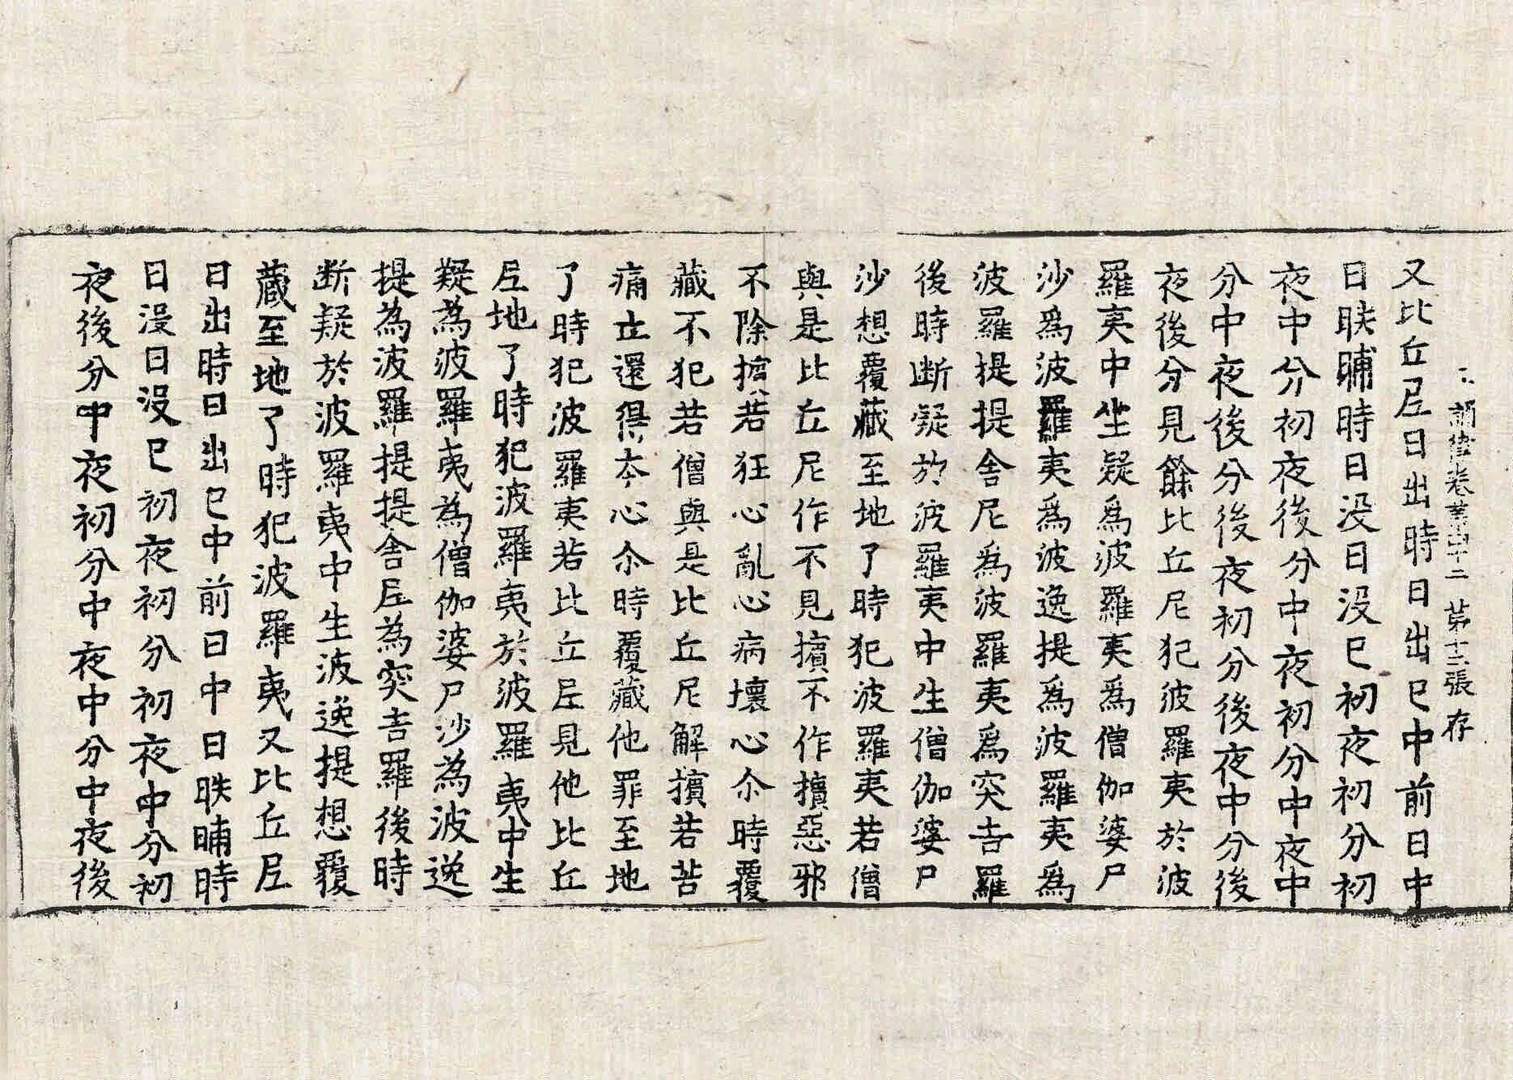 誦律卷 十二 第十二張 存
又比丘尼日出時日出已中前日中
日昳晡時日没日没已初夜初分初
夜中分初夜後分中夜初分中夜中
分中夜後分後夜初分後夜中分後
夜後分見餘比丘尼犯波羅夷於波
羅夷中生疑為波羅夷為僧伽婆尸
沙為波羅夷為波逸提為波羅夷為
波羅提提舍尼為波羅夷為突吉羅
後時断疑於波羅夷中生僧伽婆尸
沙想覆藏至地了時犯波羅夷若僧
與是比丘尼作不見擯不作擯惡邪
不除擯若狂心亂心病壞心尒時覆
藏不犯若僧與是比丘尼解擯若苦
痛立還得本心尒時覆藏他罪至地
了時犯波羅夷若比丘尼見他比丘
尼地了時犯波羅夷於波羅夷中生
疑為波羅夷為僧伽婆尸沙為波逸
提為波羅提提舍尼為突吉羅後時
断疑於波羅夷中生波逸提想覆
藏至地了時犯波羅夷又比丘尼
日出時日出已中前日中日昳晡時
日没日没已初夜初分初夜中分初
夜後分中夜初分中夜中分中夜後